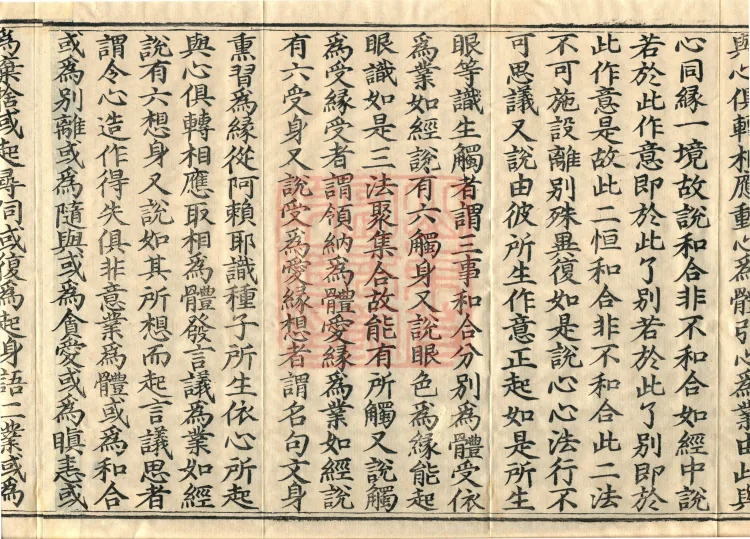 與心俱轉相應動心爲體引心爲業由此與
心同緣一境故說和合非不和合如經中說
若於此作意即於此了別若於此了別即於
此作意是故此二恒和合非不和合此二法
不可施設離別殊異復如是說心心法行不
可思議又說由彼所生作意正起如是所生
眼等識生觸者謂三事和合分別爲體受依
爲業如經說有六觸身又說眼色爲緣能起
眼識如是三法聚集合故能有所觸又說觸
爲受緣受者謂領納爲體愛緣爲業如經說
有六受身又說受爲愛緣想者謂名句文身
熏習爲緣從阿賴耶識種子所生依心所起
與心俱轉相應取相爲體發言議爲業如經
說有六想身又說如其所想而起言議思者
謂令心造作得失俱非意業爲體或爲和合
或爲別離或爲隨與或爲貪愛或爲瞋恚或
爲棄捨或起尋伺或復爲起身語二業或爲